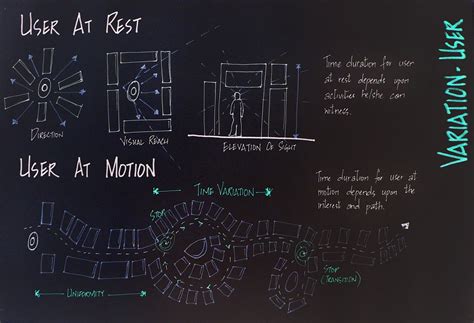 USER AT REST
VARIATION - USER
Time duration for user
at rest depends upon
activities he/she can
witness.
DIRECTION
VISUAL REACH
ELEVATION OF SIGHT
USER AT MOTION
Time duration for user at
motion depends upon the
interest and path!
TIME VARIATION
STOP
STOP
(TRANSITION)
UNIFORMITY